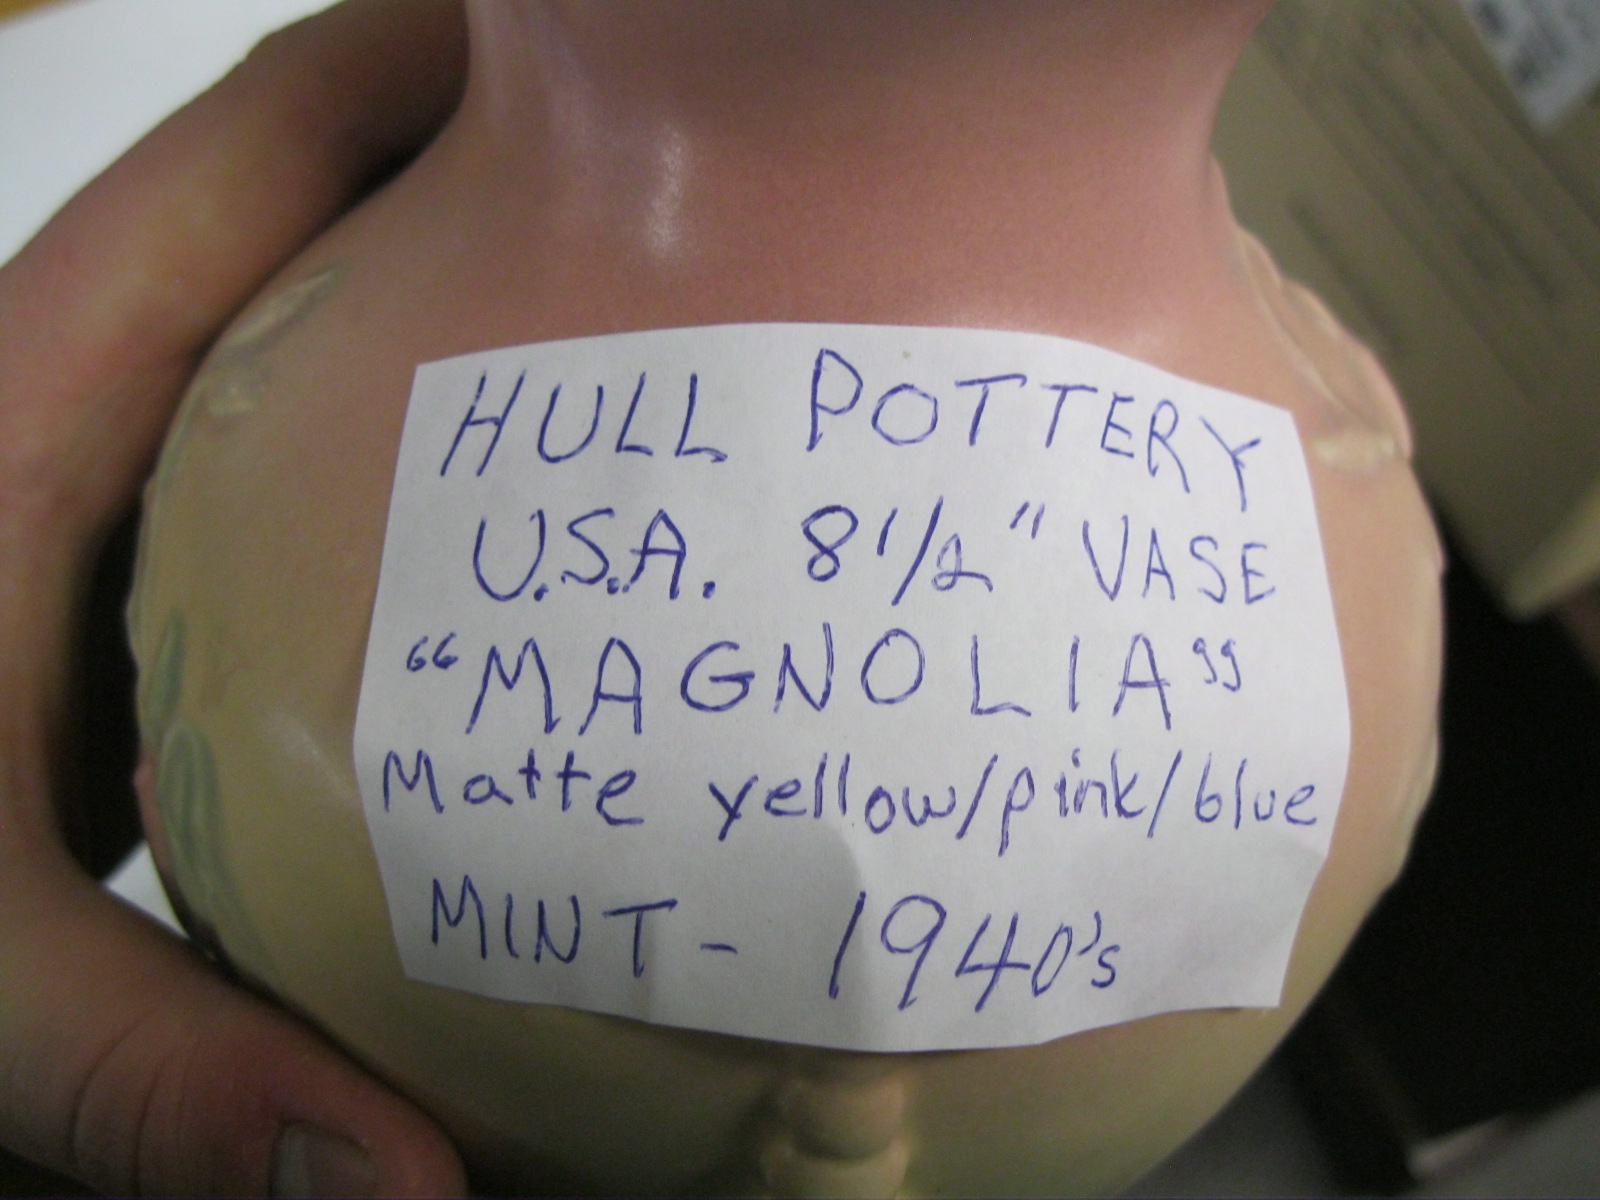 HULL POTTERY
U.S.A. 8 1/2" VASE
"MAGNOLIA"
Matte yellow/pink/blue
MINT - 1940's